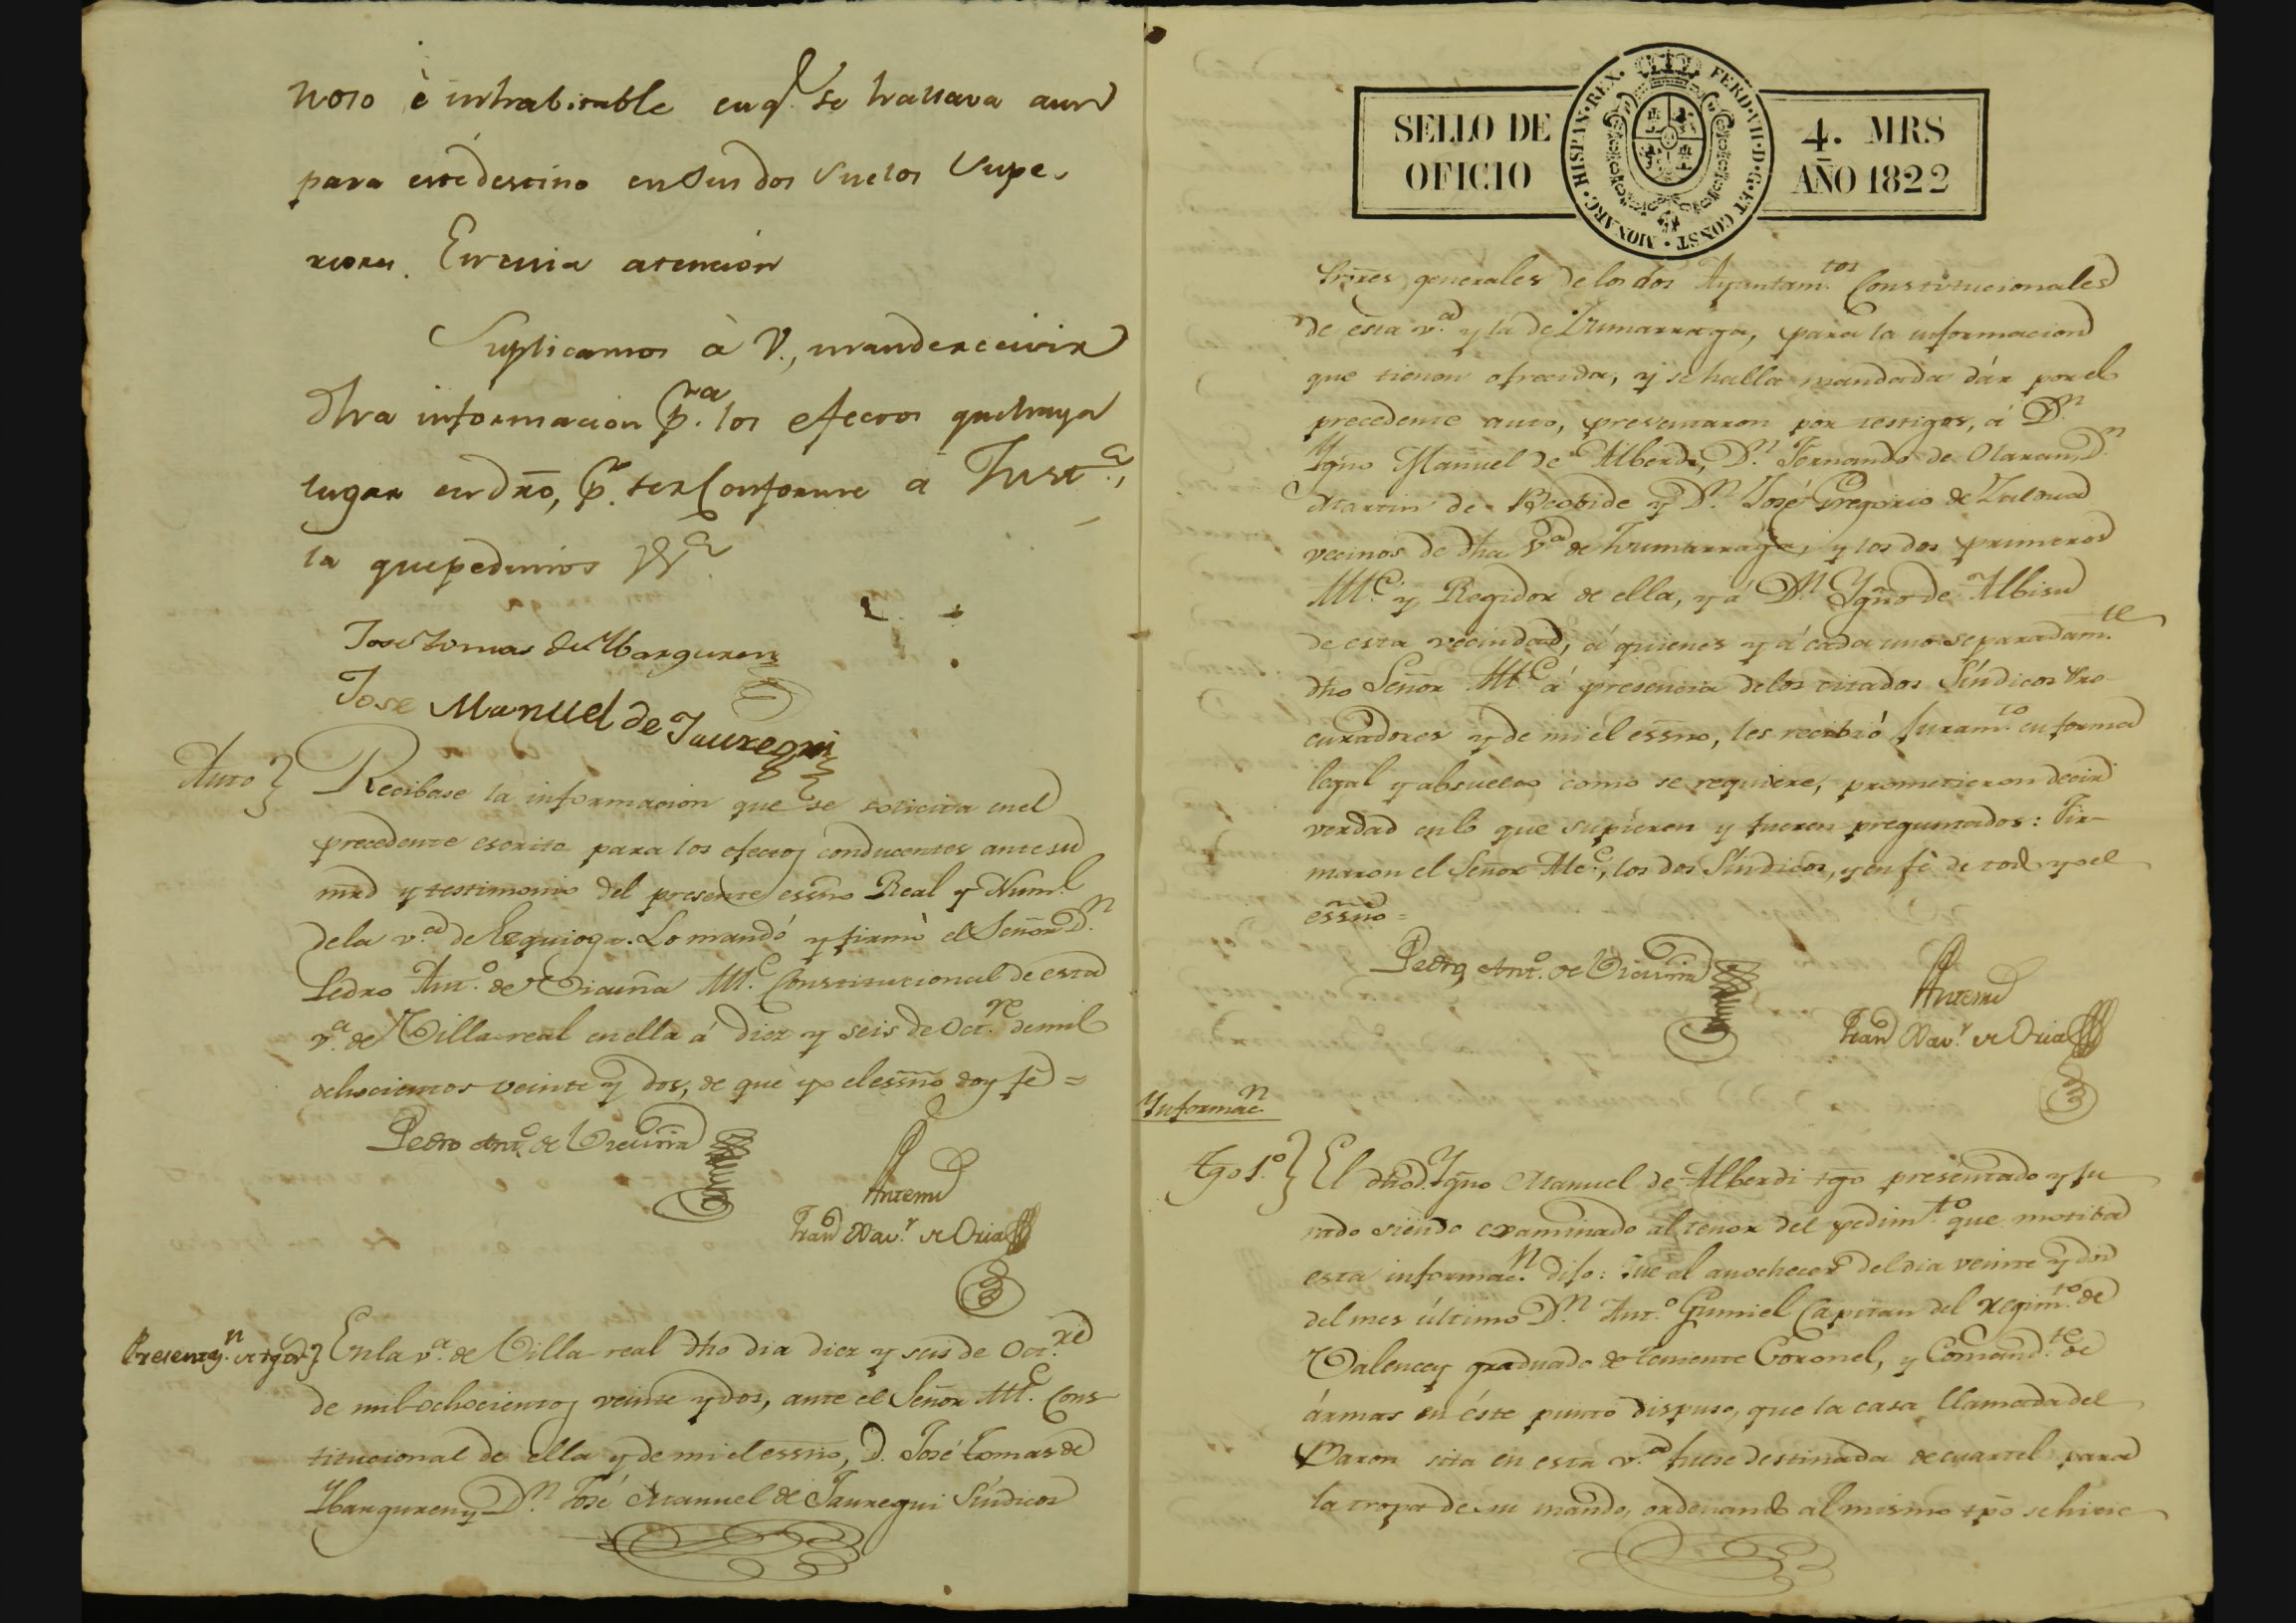 noso è inhabitable en q.e se hallava aun
para este destino en sus dos suelos supe-
riores. En cuia atencion
Suplicamos à V., mande recivir
dha informacion p.ra los efectos que haya
lugar en dro, p.r ser conforme a Just.a,
la que pedimos
Jose Tomas de Ybarguren
Jose Manuel de Jauregui
Auto} Recibase la informacion que se solicita en el
precedente escrito para los efectos conducentes ante su
mrd y testimonio del presente essno Real y Num.l
de la v.a de Ezquioga. Lo mandó y firmò el Señor D.n
Pedro Ant.o de Vicuña Al.e Constitucional de esta
v.a de Villa-real en ella á diez y seis de Oct.re de mil
ochocientos veinte y dos, de que yo el essno doy fé =
Pedro Ant.o de Vicuña
Antemi
Fran Xav.r de Oria
Presentaz.n de tgos} En la v.a de Villa-real dho dia diez y seis de Oct.re
de mil ochocientos veinte y dos, ante el Señor Al.e Cons-
titucional de ella y de mi el essno, D. José Tomas de
Ybarguren y D.n José Manuel de Jauregui Síndicos
SELLO DE OFICIO
MONARC·HISPAN·REX· FERD·VII·D·G·ET CONST·
4. MRS
AÑO 1822
generales de los dos Ayuntam.tos Constitucionales
de esta v.a y la de Zumarraga, para la informacion
que tienen ofrecida, y se halla mandada dár por el
precedente auto, presentaron por testigos, á D.n
Ygno Manuel de Alberdi, D.n Fernando de Olaran, D.n
Martin de Recoide y D.n José Gregorio de
vecinos de dha v.a de Zumarraga, y los dos primeros
Al.e y Regidor de ella, y á D.n Ygno de Albisu
de esta vecindad, á quienes y á cada uno separadam.te
dho Señor Al.e á presencia de los citados Síndicos Pro-
curadores y de mi el essno, les recibió juram.to en forma
legal y absueltos como se requiere, prometieron decir
verdad en lo que supieren y fueren preguntados: Fir-
maron el Señor Alc.e, los dos Síndicos, y en fé de todo yo el
essno =
Pedro Ant.o de Vicuña
Antemi
Fran Xav.r de Oria
Ynformac.n
Tgo 1.o} El dho D. Ygno Manuel de Alberdi tgo presentado y ju-
rado siendo examinado al tenor del pedim.to que motiba
esta informac.n dijo: Que al anochecer del dia veinte y dos
del mes último D.n Ant.o Gumiel Capitan del Regim.to de
Valencey graduado de teniente Coronel, y Comand.te de
ármas en éste punto dispuso, que la casa llamada del
Baron sita en esta v.a fuese destinada de cuartel para
la tropa de su mando, ordenando al mismo tpo se hicie-